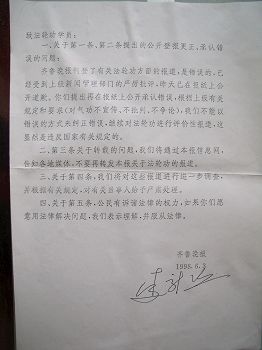 致法轮功学员：
一、关于第一条、第二条提出的公开登报更正、承认错
误的问题：
齐鲁晚报刊登了有关法轮功方面的报道，是错误的，已
经受到上级新闻管理部门的严厉批评，昨天已在报纸上公
开道歉。你们提出再在报纸上公开承认错误，根据上级有关
规定和要求(对气功不宣传、不批判、不争论)，我们不能以
错误的方式来纠正错误，继续对法轮功进行评价性报道，这
显然是违反国家有关规定的。
二、第三条关于转载的问题，我们将通过本报信息网，
告知各地媒体，不要再转发本报关于法轮功的报道。
三、关于第四条，我们将对这些报道进行进一步调查，
并根据有关规定，对有关当事人给予严肃处理。
四、关于第五条，公民有诉诸法律的权力，如果你们愿
意用法律解决问题，我们表示理解，并服从法律。
齐鲁晚报
1998.6.3